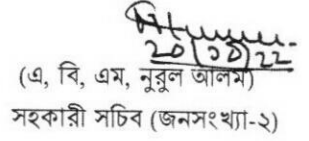 20/10/22
(এ, বি, এম, নুরুল আলম)
সহকারী সচিব (জনসংখ্যা-২)